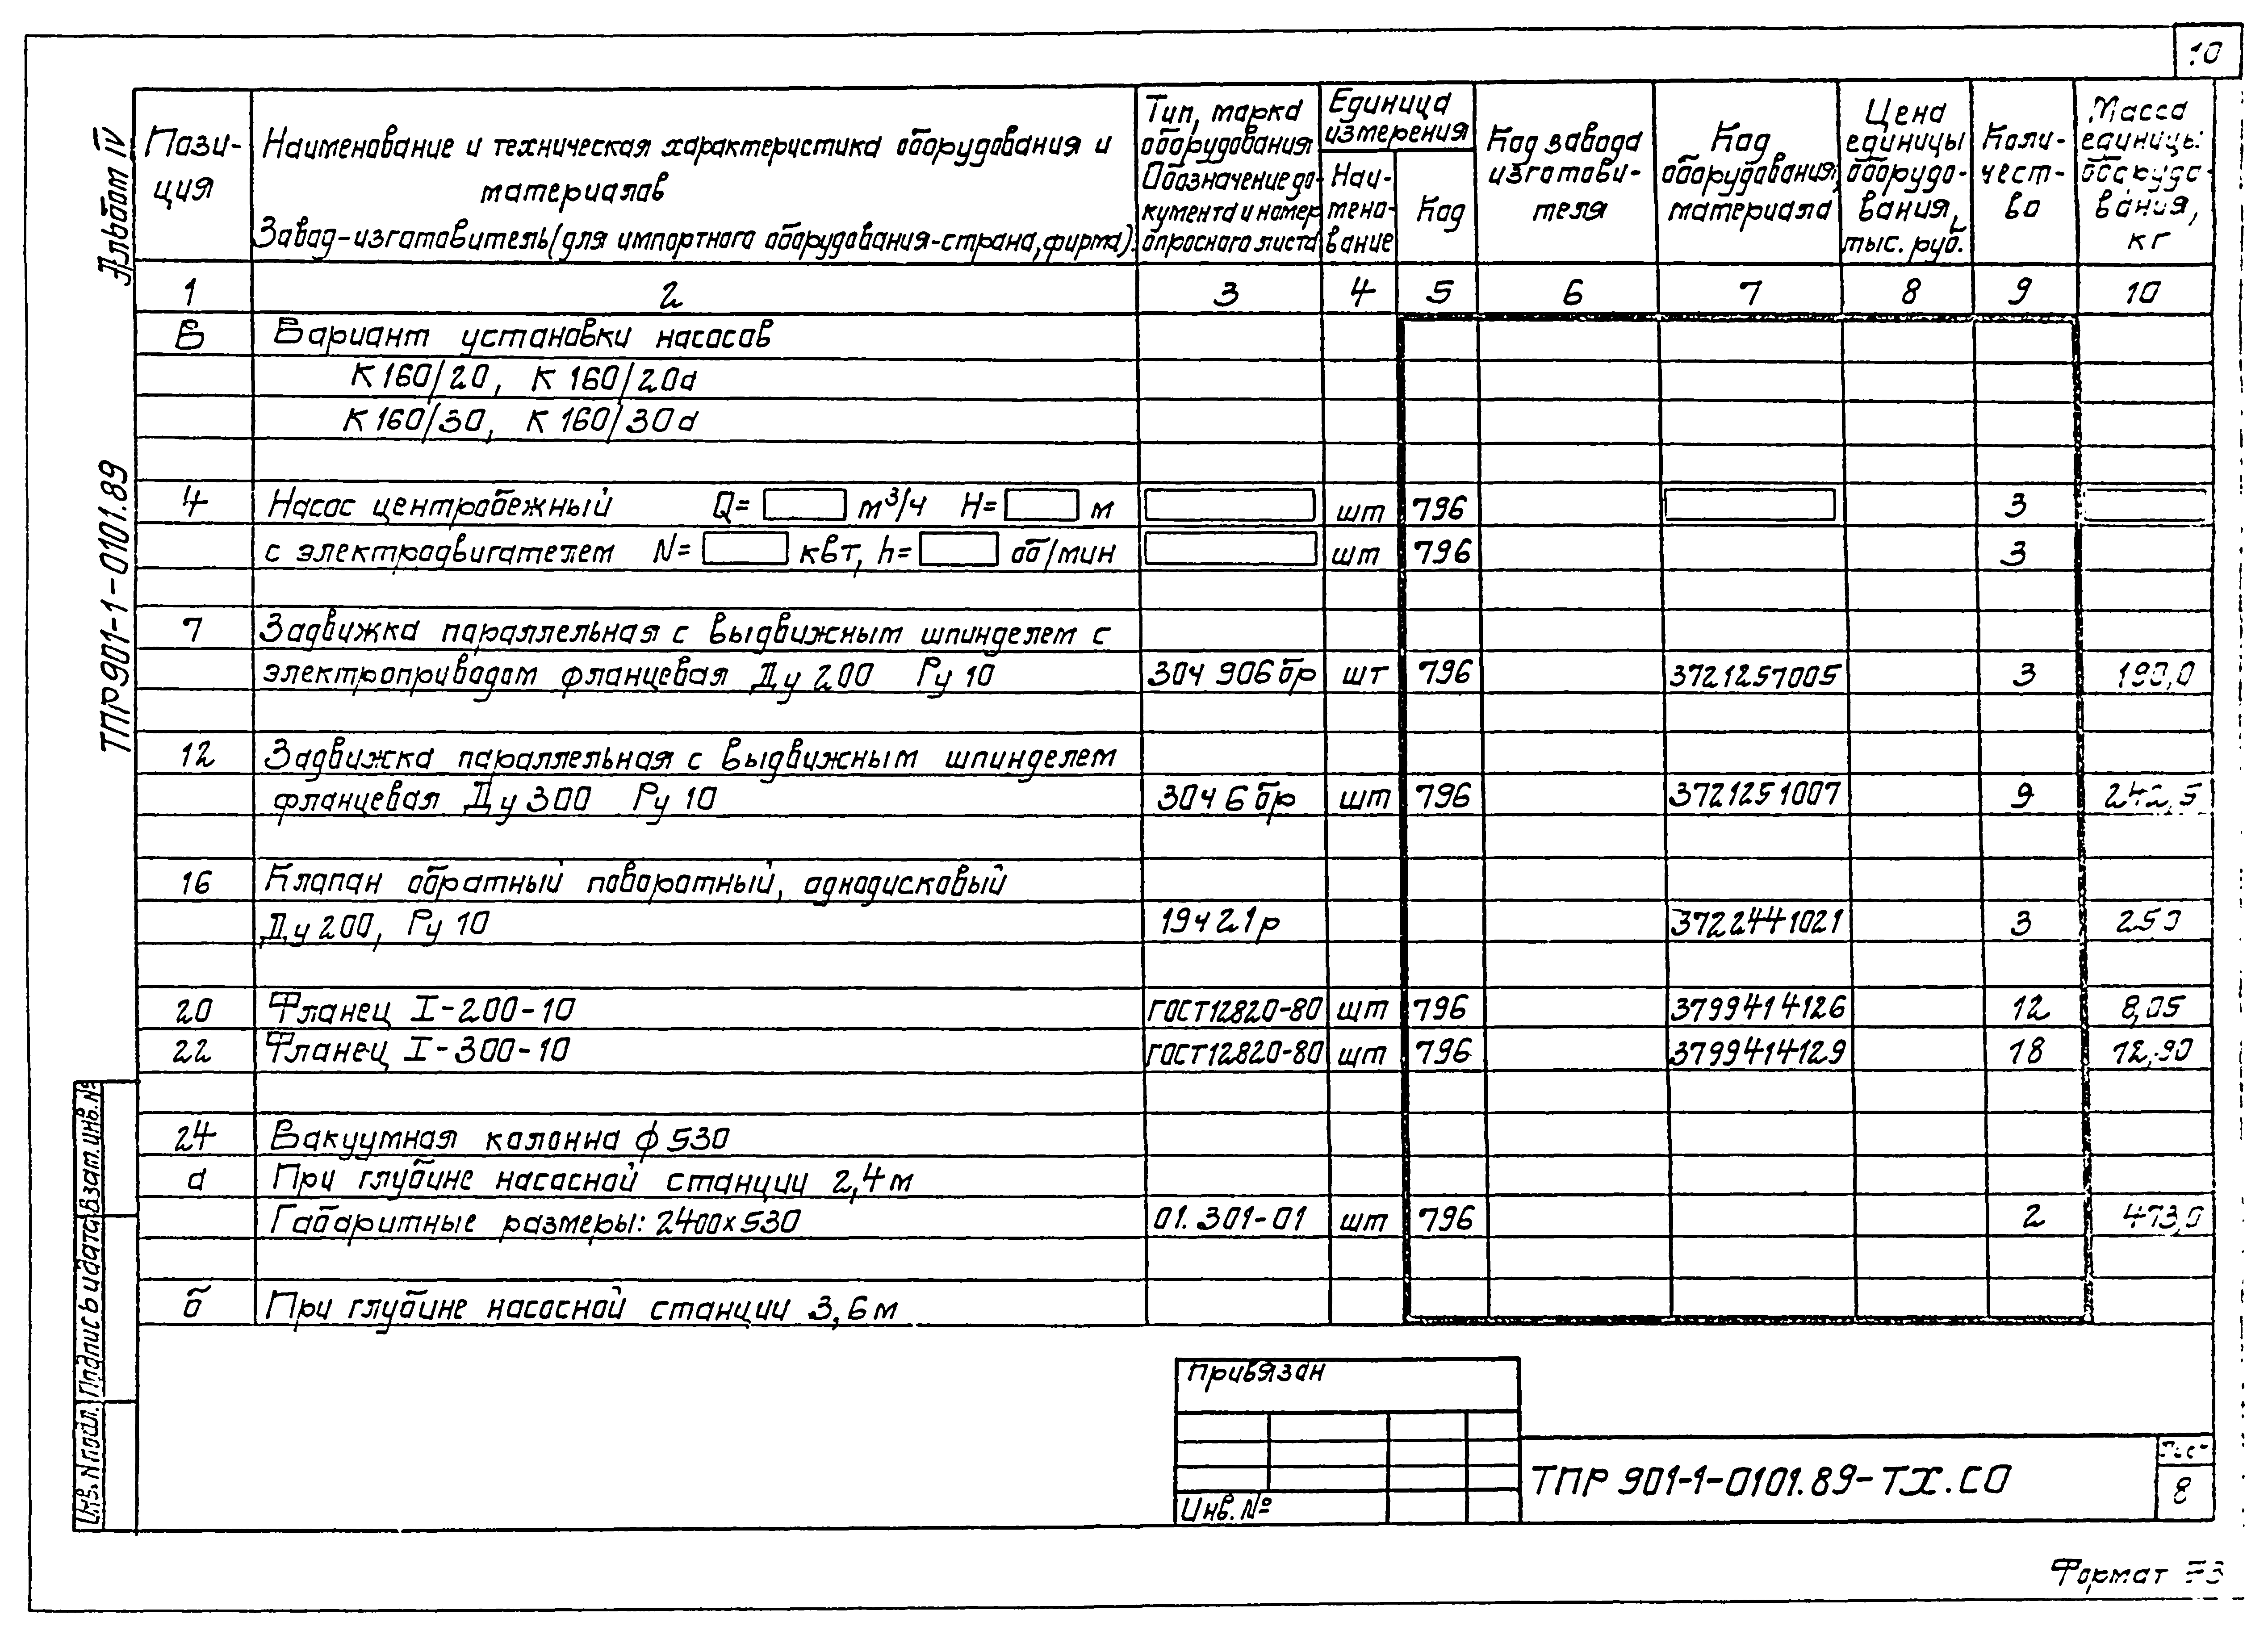 10
Альбом IV
ТПР901-1-0101.89
Пози-
ция
Наименование и техническая характеристика оборудования и
материалов
Завод-изготовитель (для импортного оборудования-страна, фирма).
Тип, марка
оборудования
Обозначение до-
кумента и номер
опросного листа
Единица
измерения
Наи-
мено-
вание
Код
Код завода
изготови-
теля
Код
оборудования,
материала
Цена
единицы
оборудо-
вания,
тыс. руб.
Коли-
чест-
во
Масса
единицы
оборудо-
вания,
кг
1 2 3 4 5 6 7 8 9 10
В Вариант установки насосов
К 160/20, К 160/20а
К 160/30, К 160/30а
4 Насос центробежный Q= м³/ч H= м шт 796 3
с электродвигателем N= квт, h= об/мин шт 796 3
7 Задвижка параллельная с выдвижным шпинделем с
электроприводом фланцевая Ду 200 Ру 10 30ч 906бр шт 796 3721257005 3 190,0
12 Задвижка параллельная с выдвижным шпинделем
фланцевая Ду 300 Ру 10 30ч 6 бр шт 796 3721251007 9 242,5
16 Клапан обратный поворотный, однодисковый
Ду 200, Ру 10 19ч 21р 3722441021 3
20 Фланец I-200-10 ГОСТ12820-80 шт 796 3799414126 12 8,05
22 Фланец I-300-10 ГОСТ12820-80 шт 796 3799414129 18 12,90
24 Вакуумная колонна ф 530
а При глубине насосной станции 2,4 м
Габаритные размеры: 2400х530 01.301-01 шт 796 2 473,0
б При глубине насосной станции 3,6 м
Взам. инв. №
Подпись и дата
Инв. N подл.
Привязан
Инв. №
ТПР 901-1-0101.89-ТХ.СО
Лист
8
Формат